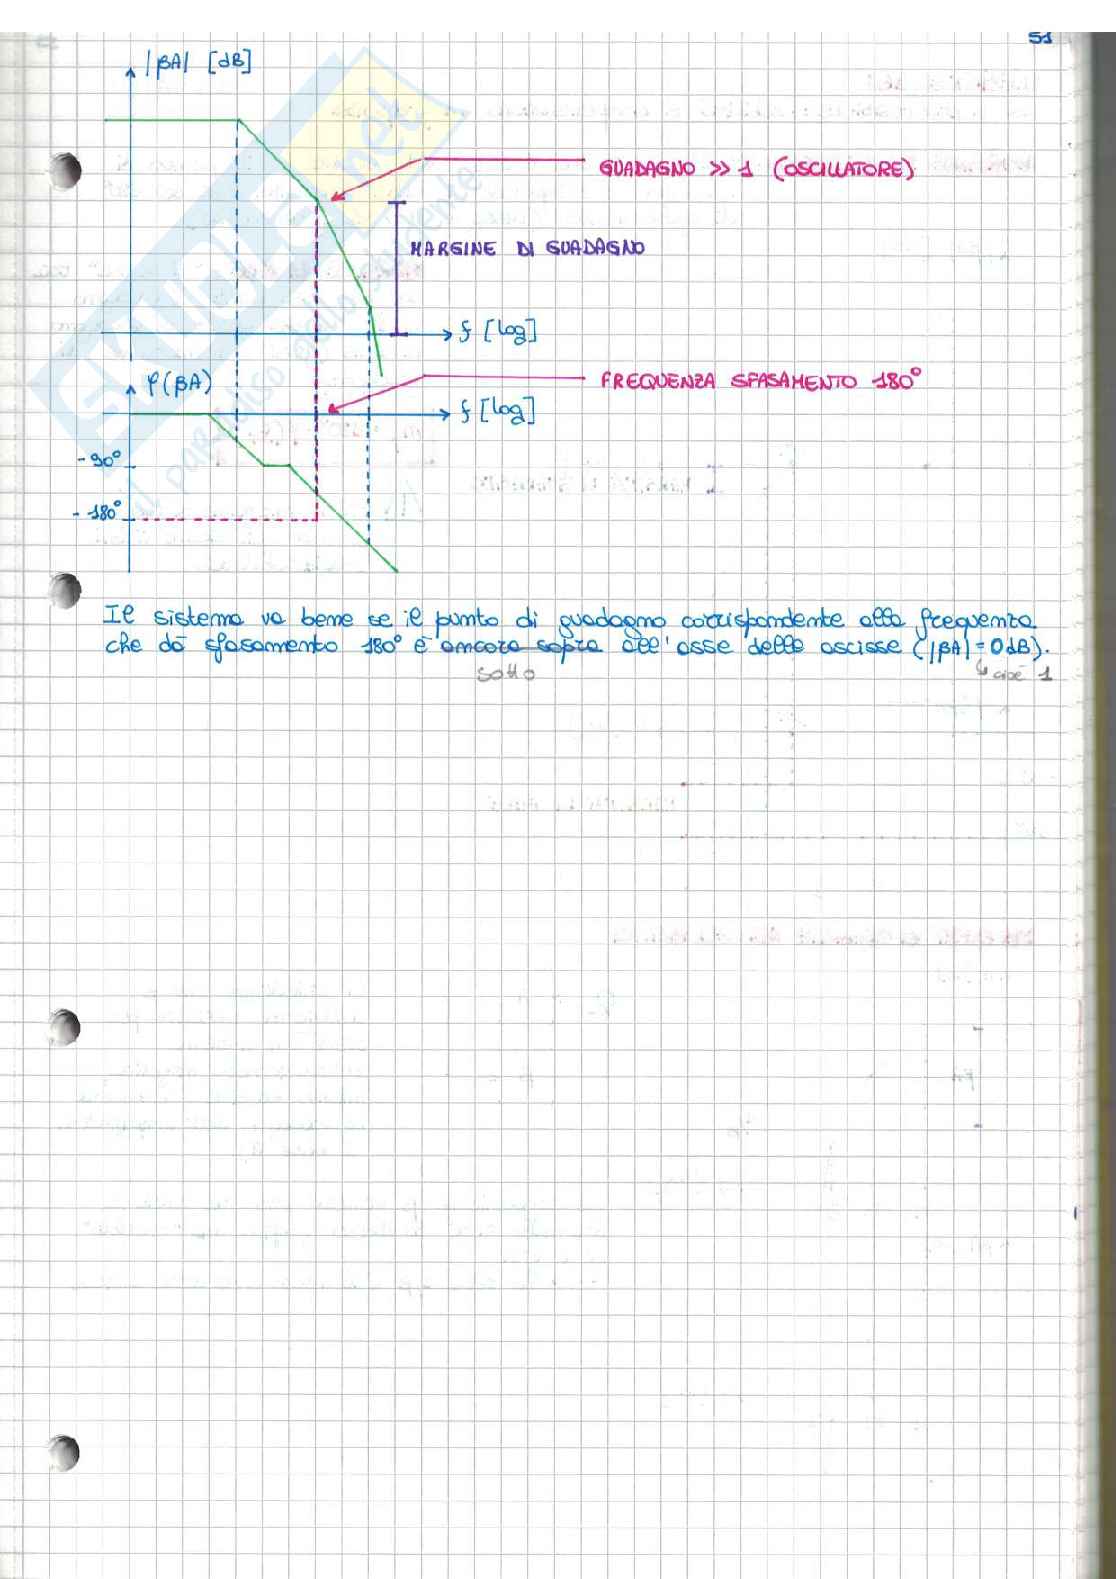 51
|βA| [dB]
GUADAGNO >> 1 (OSCILLATORE)
MARGINE DI GUADAGNO
f [log]
φ(βA)
FREQUENZA SFASAMENTO 180°
f [log]
- 90°
- 180°
Il sistema va bene se il punto di guadagno corrispondente alla frequenza
che dà sfasamento 180° è ancora sopra all'asse delle ascisse (|βA| = 0dB).
sotto
↳ cioè 1
SKUOLA.net
il paradiso dello studente